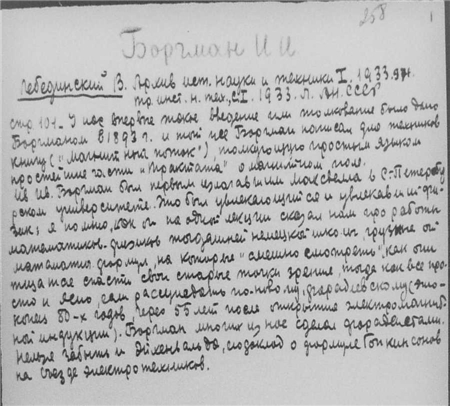 258
Боргман И И
Лебединский В. Архив ист. науки и техники I. 1933.
тр. инст. н. тех., с. I. 1933. Л. АН. СССР
стр 101 - У нас впервые такое введение или толкование было дано
Боргманом в 1893 г. и тот же Боргман написал для техников
книгу ("магнитный поток"), толкующую простым языком
простейшие "трактата" о магнитном поле.
Ив Ив. Боргман был первым излагавшим Максвелла в С-Петербу
ргском университете. Это был увлекающийся и увлекавший фи-
зик; я помню, как он на одной лекции сказал нам про работы
математиков-физиков тогдашней немецкой школы
математич. формул, на которые "смешно смотреть", как они
тщатся спасти свои старые точки зрения, тогда как все про-
сто и ясно, если рассуждать по-новому, фарадеевскому (это
конец 80-х годов, через 55 лет после открытия электромагнит-
ной индукции). Боргман многих из нас сделал фарадеистами.
Нельзя забыть и Эйхенвальда, доклад о формуле Гопкинсонов
на съезде электротехников.